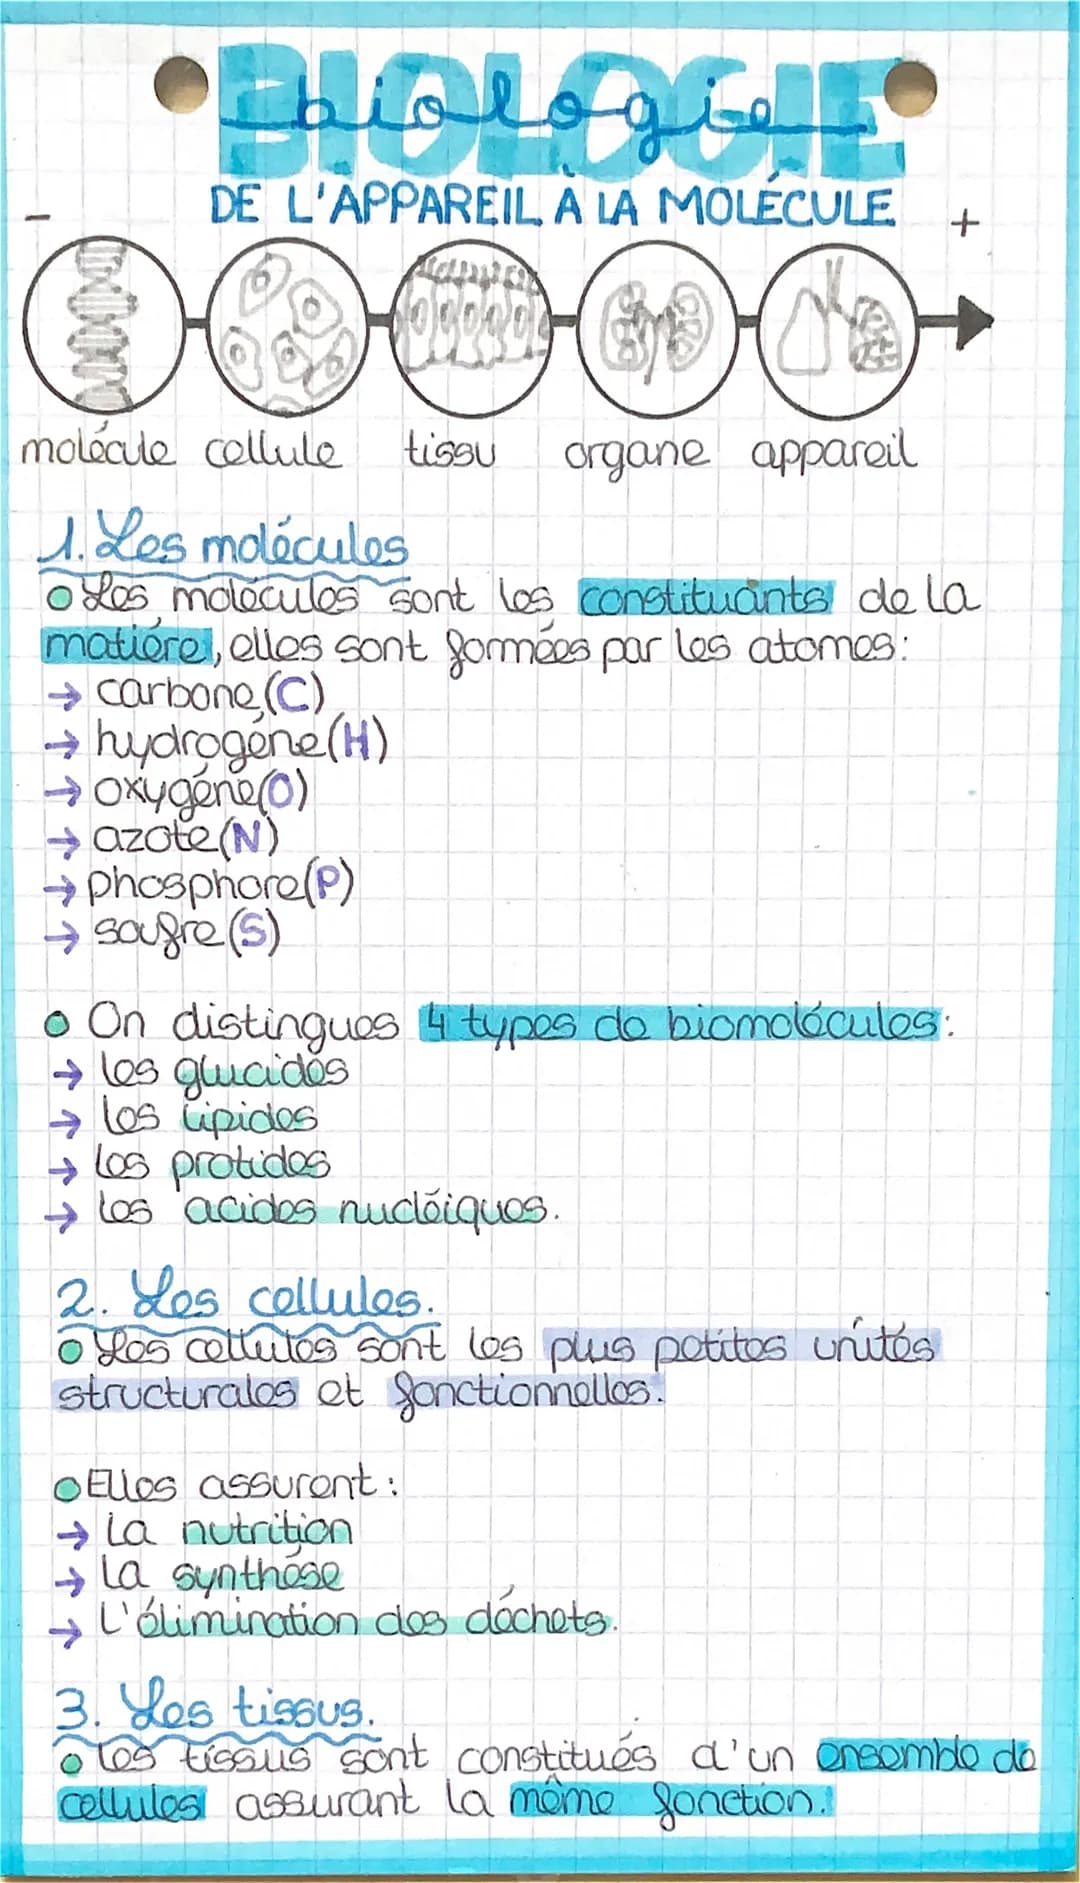 BIOLOGIE
biologie
DE L'APPAREIL À LA MOLÉCULE
- +
molécule cellule tissu organe appareil
1. Les molécules
Les molécules sont les constituants de la
matiére, elles sont formées par les atomes:
→ carbone (C)
→ hydrogéne (H)
→ oxygéne (O)
→ azote (N)
→ phosphore (P)
→ soufre (S)
On distingues 4 types de biomolécules:
→ les glucides
→ les lipides
→ les protides
→ les acides nucléiques.
2. Les cellules.
Les cellules sont les plus petites unités
structurales et fonctionnelles.
Elles assurent:
→ la nutrition
→ la synthése
→ L'élimination des déchets.
3. Les tissus.
Les tissus sont constitués d'un ensemble de
cellules assurant la même fonction.